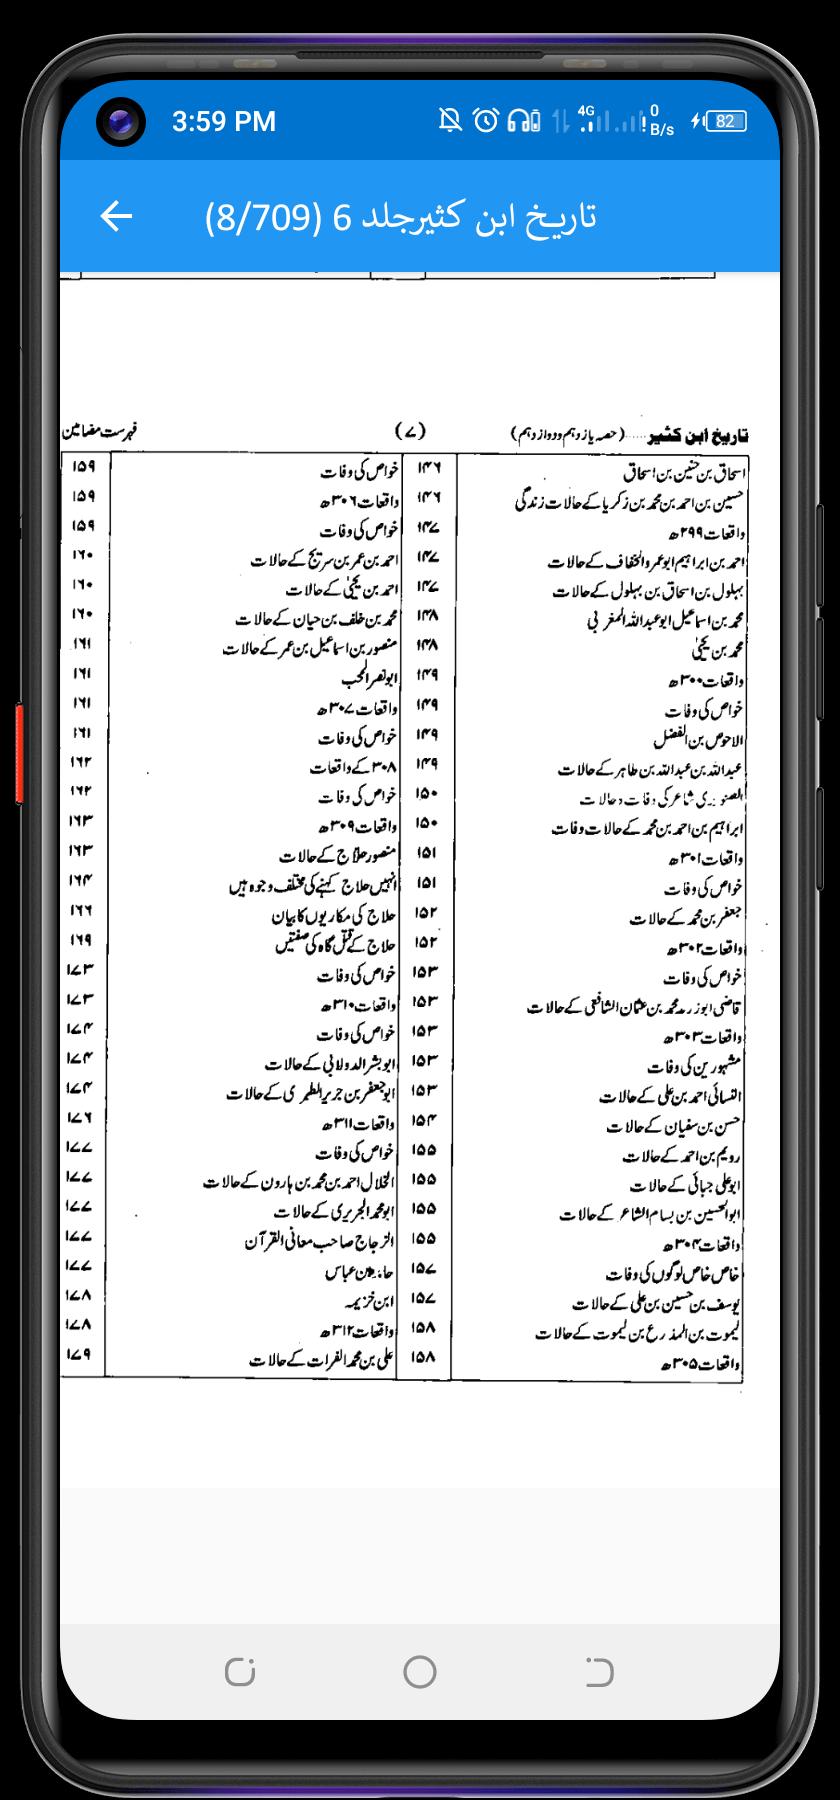 3:59 PM
4G
0 B/s
82
تاریخ ابن کثیرجلد 6 (8/709)
تاریخ ابن کثیر ...... (حصہ یازدہم ودوازدہم)
(۷)
فہرست مضامین
اسحاق بن حنین بن اسحاق ۱۴۶
حسین بن احمد بن محمد بن زکریا کے حالات زندگی ۱۴۶
واقعات ۲۹۹ھ ۱۴۷
احمد بن ابراہیم ابوعمرو الخفاف کے حالات ۱۴۷
بہلول بن اسحاق بن بہلول کے حالات ۱۴۷
محمد بن اسماعیل ابوعبداللہ المغربی ۱۴۸
محمد بن یحییٰ ۱۴۸
واقعات ۳۰۰ھ ۱۴۹
خواص کی وفات ۱۴۹
الاحوص بن الفضل ۱۴۹
عبداللہ بن عبداللہ بن طاہر کے حالات ۱۴۹
الصنوبری شاعر کی وفات وحالات ۱۵۰
ابراہیم بن احمد بن محمد کے حالات وفات ۱۵۰
واقعات ۳۰۱ھ ۱۵۱
خواص کی وفات ۱۵۱
جعفر بن محمد کے حالات ۱۵۲
واقعات ۳۰۲ھ ۱۵۲
خواص کی وفات ۱۵۳
قاضی ابوزرعہ محمد بن عثمان الشافعی کے حالات ۱۵۳
واقعات ۳۰۳ھ ۱۵۳
مشہورین کی وفات ۱۵۳
النسائی احمد بن علی کے حالات ۱۵۳
حسن بن سفیان کے حالات ۱۵۴
رویم بن احمد کے حالات ۱۵۵
ابوعلی جبائی کے حالات ۱۵۵
ابوالحسین بن بسام الشاعر کے حالات ۱۵۵
واقعات ۳۰۴ھ ۱۵۵
خاص خاص لوگوں کی وفات ۱۵۷
یوسف بن حسین بن علی کے حالات ۱۵۷
لیموت بن المذرع بن لیموت کے حالات ۱۵۸
واقعات ۳۰۵ھ ۱۵۸
خواص کی وفات ۱۵۹
واقعات ۳۰۶ھ ۱۵۹
خواص کی وفات ۱۵۹
احمد بن عمر بن سریج کے حالات ۱۶۰
احمد بن یحییٰ کے حالات ۱۶۰
محمد بن خلف بن حیان کے حالات ۱۶۰
منصور بن اسماعیل بن عمر کے حالات ۱۶۱
ابونصر المحب ۱۶۱
واقعات ۳۰۷ھ ۱۶۱
خواص کی وفات ۱۶۱
۳۰۸ کے واقعات ۱۶۲
خواص کی وفات ۱۶۲
واقعات ۳۰۹ھ ۱۶۳
منصور حلاج کے حالات ۱۶۳
انہیں حلاج کہنے کی مختلف وجوہ ہیں ۱۶۴
حلاج کی مکاریوں کا بیان ۱۶۶
حلاج کے قتل گاہ کی صفتیں ۱۶۹
خواص کی وفات ۱۷۳
واقعات ۳۱۰ھ ۱۷۳
خواص کی وفات ۱۷۴
ابو بشر الدولابی کے حالات ۱۷۴
ابوجعفر بن جریر الطبری کے حالات ۱۷۴
واقعات ۳۱۱ھ ۱۷۶
خواص کی وفات ۱۷۷
الخلال احمد بن محمد بن ہارون کے حالات ۱۷۷
ابومحمد الجریری کے حالات ۱۷۷
الزجاج صاحب معانی القرآن ۱۷۷
بن عباس ۱۷۷
ابن خزیمہ ۱۷۸
واقعات ۳۱۲ھ ۱۷۸
علی بن محمد الفرات کے حالات ۱۷۹